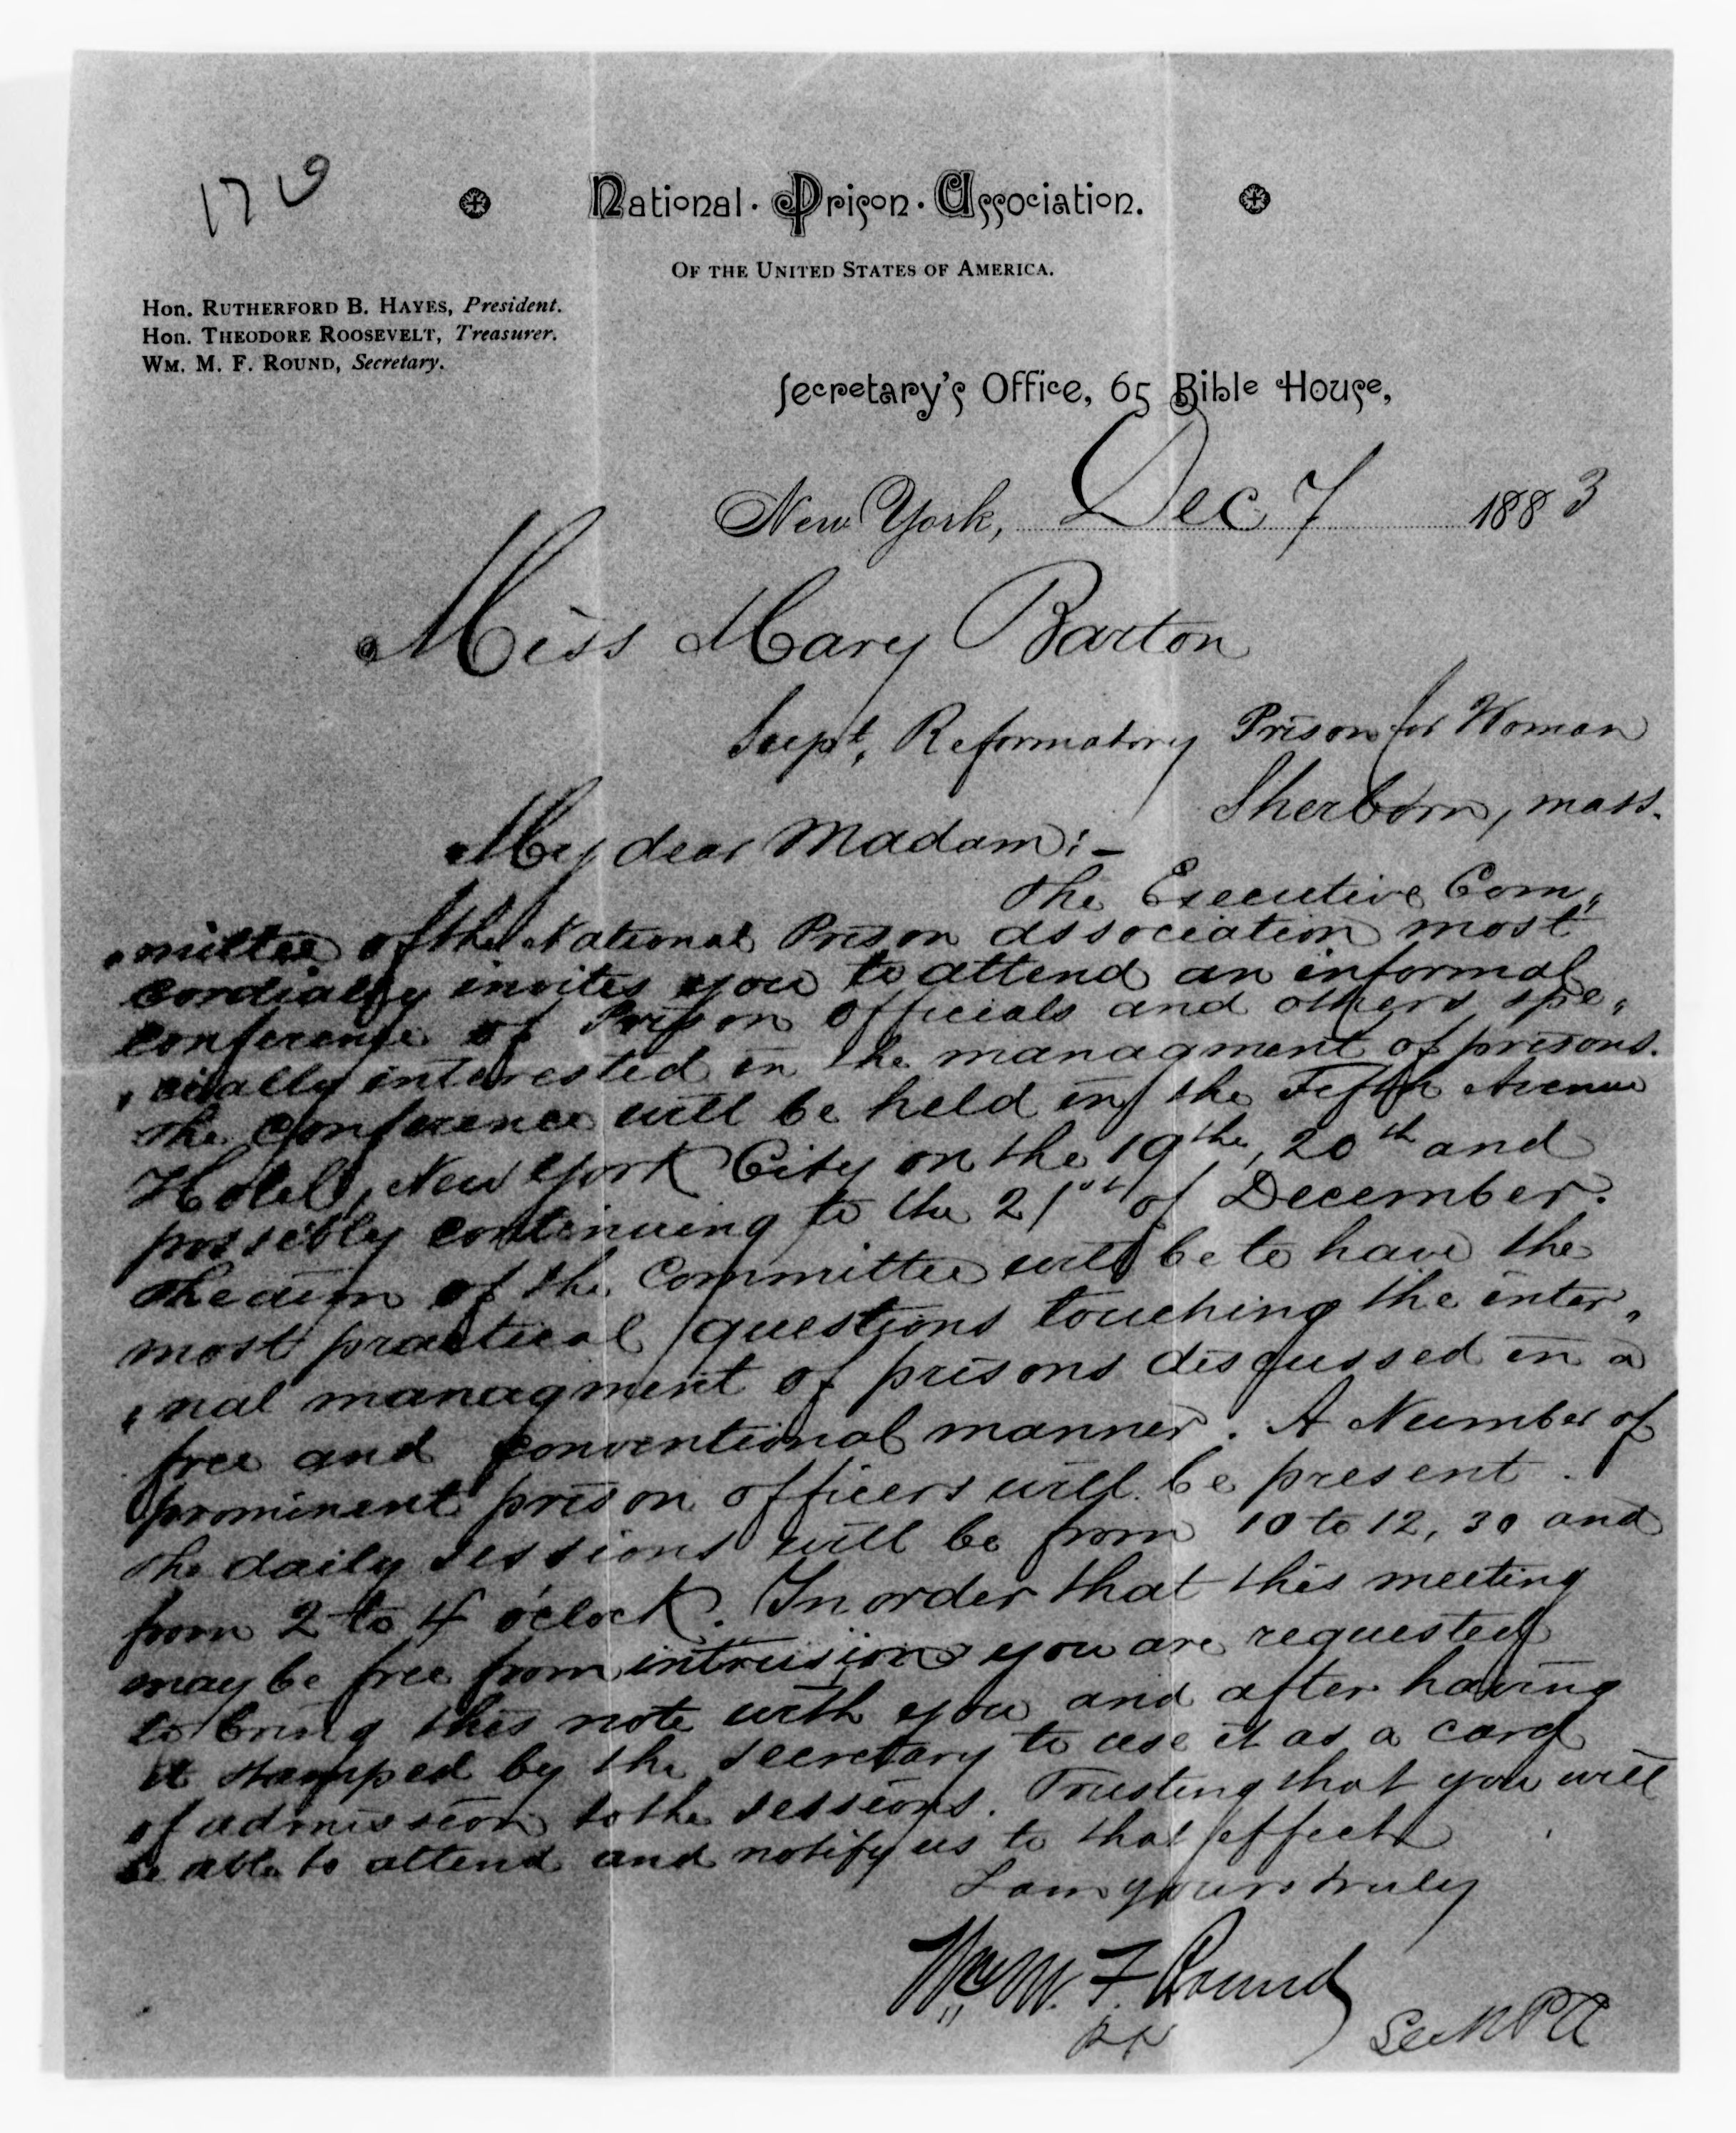 1719
National · Prison · Association.
OF THE UNITED STATES OF AMERICA.
Hon. RUTHERFORD B. HAYES, President.
Hon. THEODORE ROOSEVELT, Treasurer.
WM. M. F. ROUND, Secretary.
Secretary's Office, 65 Bible House,
New York, Dec 7 1883
Miss Mary Barton
Supt, Reformatory Prison for Woman
Sherborn, mass.
My dear Madam:—
The Executive Com-
mittee of the National Prison association most
cordially invites you to attend an informal
conference of Prison officials and others spe-
cially interested in the managment of prisons.
The Conference will be held in the Fifth Avenue
Hotel, New York City on the 19th, 20th and
possibly continuing to the 21st of December.
The aim of the Committee will be to have the
most practical questions touching the inter-
nal managment of prisons discussed in a
free and conventional manner. A Number of
prominent prison officers will be present.
The daily sessions will be from 10 to 12,30 and
from 2 to 4 o'clock. In order that this meeting
may be free from intrusion you are requested
to bring this note with you and after having
it stamped by the secretary to use it as a card
of admission to the sessions. Trusting that you will
be able to attend and notify us to that effect
I am yours truly
Wm M. F. Round
Sec N P A